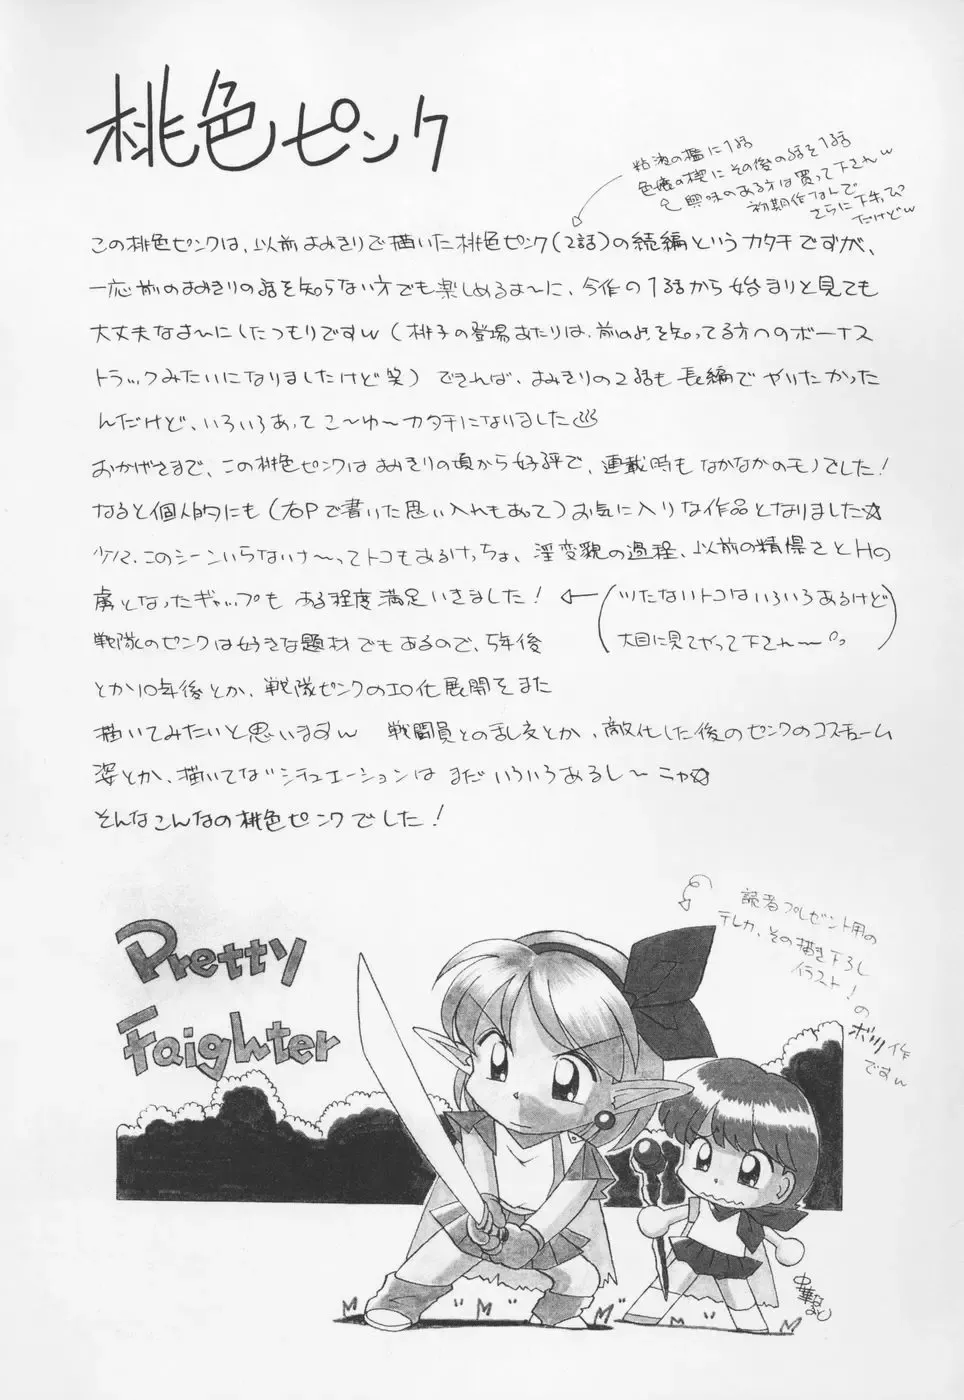 桃色ピンク
粘液の檻に1話
色魔の楔にその後の話を1話
興味のある方は買って下されw
初期作なんで
さらに下手っぴ
だけどw
この桃色ピンクは、以前よみきりで描いた桃色ピンク(2話)の続編というカタチですが、
一応前のよみきりの話を知らない方でも楽しめるよ〜に、今作の1話から始まりと見ても
大丈夫なよ〜にしたつもりですw(桃子の登場あたりは、前のを知ってる方へのボーナス
トラックみたいになりましたけど笑)できれば、よみきりの2話も長編でやりたかった
んだけど、いろいろあってこ〜ゆ〜カタチになりました
おかげさまで、この桃色ピンクはよみきりの頃から好評で、連載時もなかなかのモノでした!
なると個人的にも(右Pで書いた思い入れもあって)お気に入りな作品となりました☆
少々、このシーンいらないけ〜ってトコもあるけっちょ、淫変貌の過程、以前の精悍さとHの
虜となったギャップもある程度満足いきました!
(ツたないトコはいろいろあるけど
大目に見てやって下され〜)
戦隊のピンクは好きな題材でもあるので、5年後
とか10年後とか、戦隊ピンクのエロ化展開をまた
描いてみたいと思いますw 戦闘員との乱交とか、敵化した後のピンクのコスチューム
姿とか、描いてないシチュエーションはまだいろいろあるし〜ニャ☆
そんなこんなの桃色ピンクでした!
読者プレゼント用の
テレカ、その描き下ろし
イラスト!
の
ボツ作
ですw
Pretty
Faighter
中華なると